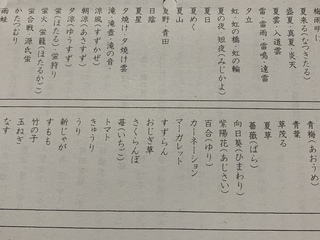 梅雨明け
夏来る(なつきたる)
盛夏・真夏・炎天
夏雲・入道雲
雷・雷雨・雷鳴・遠雷
夕立
虹・虹の橋・虹の輪
夏の夜・短夜(みじかよ)
夏の日
夏めく
夏山
夏野・青田
日陰
夏星
夕焼け・夕焼け雲
滝・滝壺・滝の音
涼風(すずかぜ)
朝涼(あさすず)
夕涼(ゆうすず)
蛍(ほたる)・蛍狩り
蛍火・蛍籠(ほたるかご)
蛍合戦・源氏蛍
かたつむり
雨蛙
青梅(あおうめ)
青葉
草茂る
夏草
薔薇(ばら)
向日葵(ひまわり)
紫陽花(あじさい)
百合(ゆり)
カーネーション
マーガレット
すずらん
おじぎ草
さくらんぼ
苺(いちご)
トマト
きゅうり
うり
新じゃが
すもも
竹の子
玉ねぎ
なす